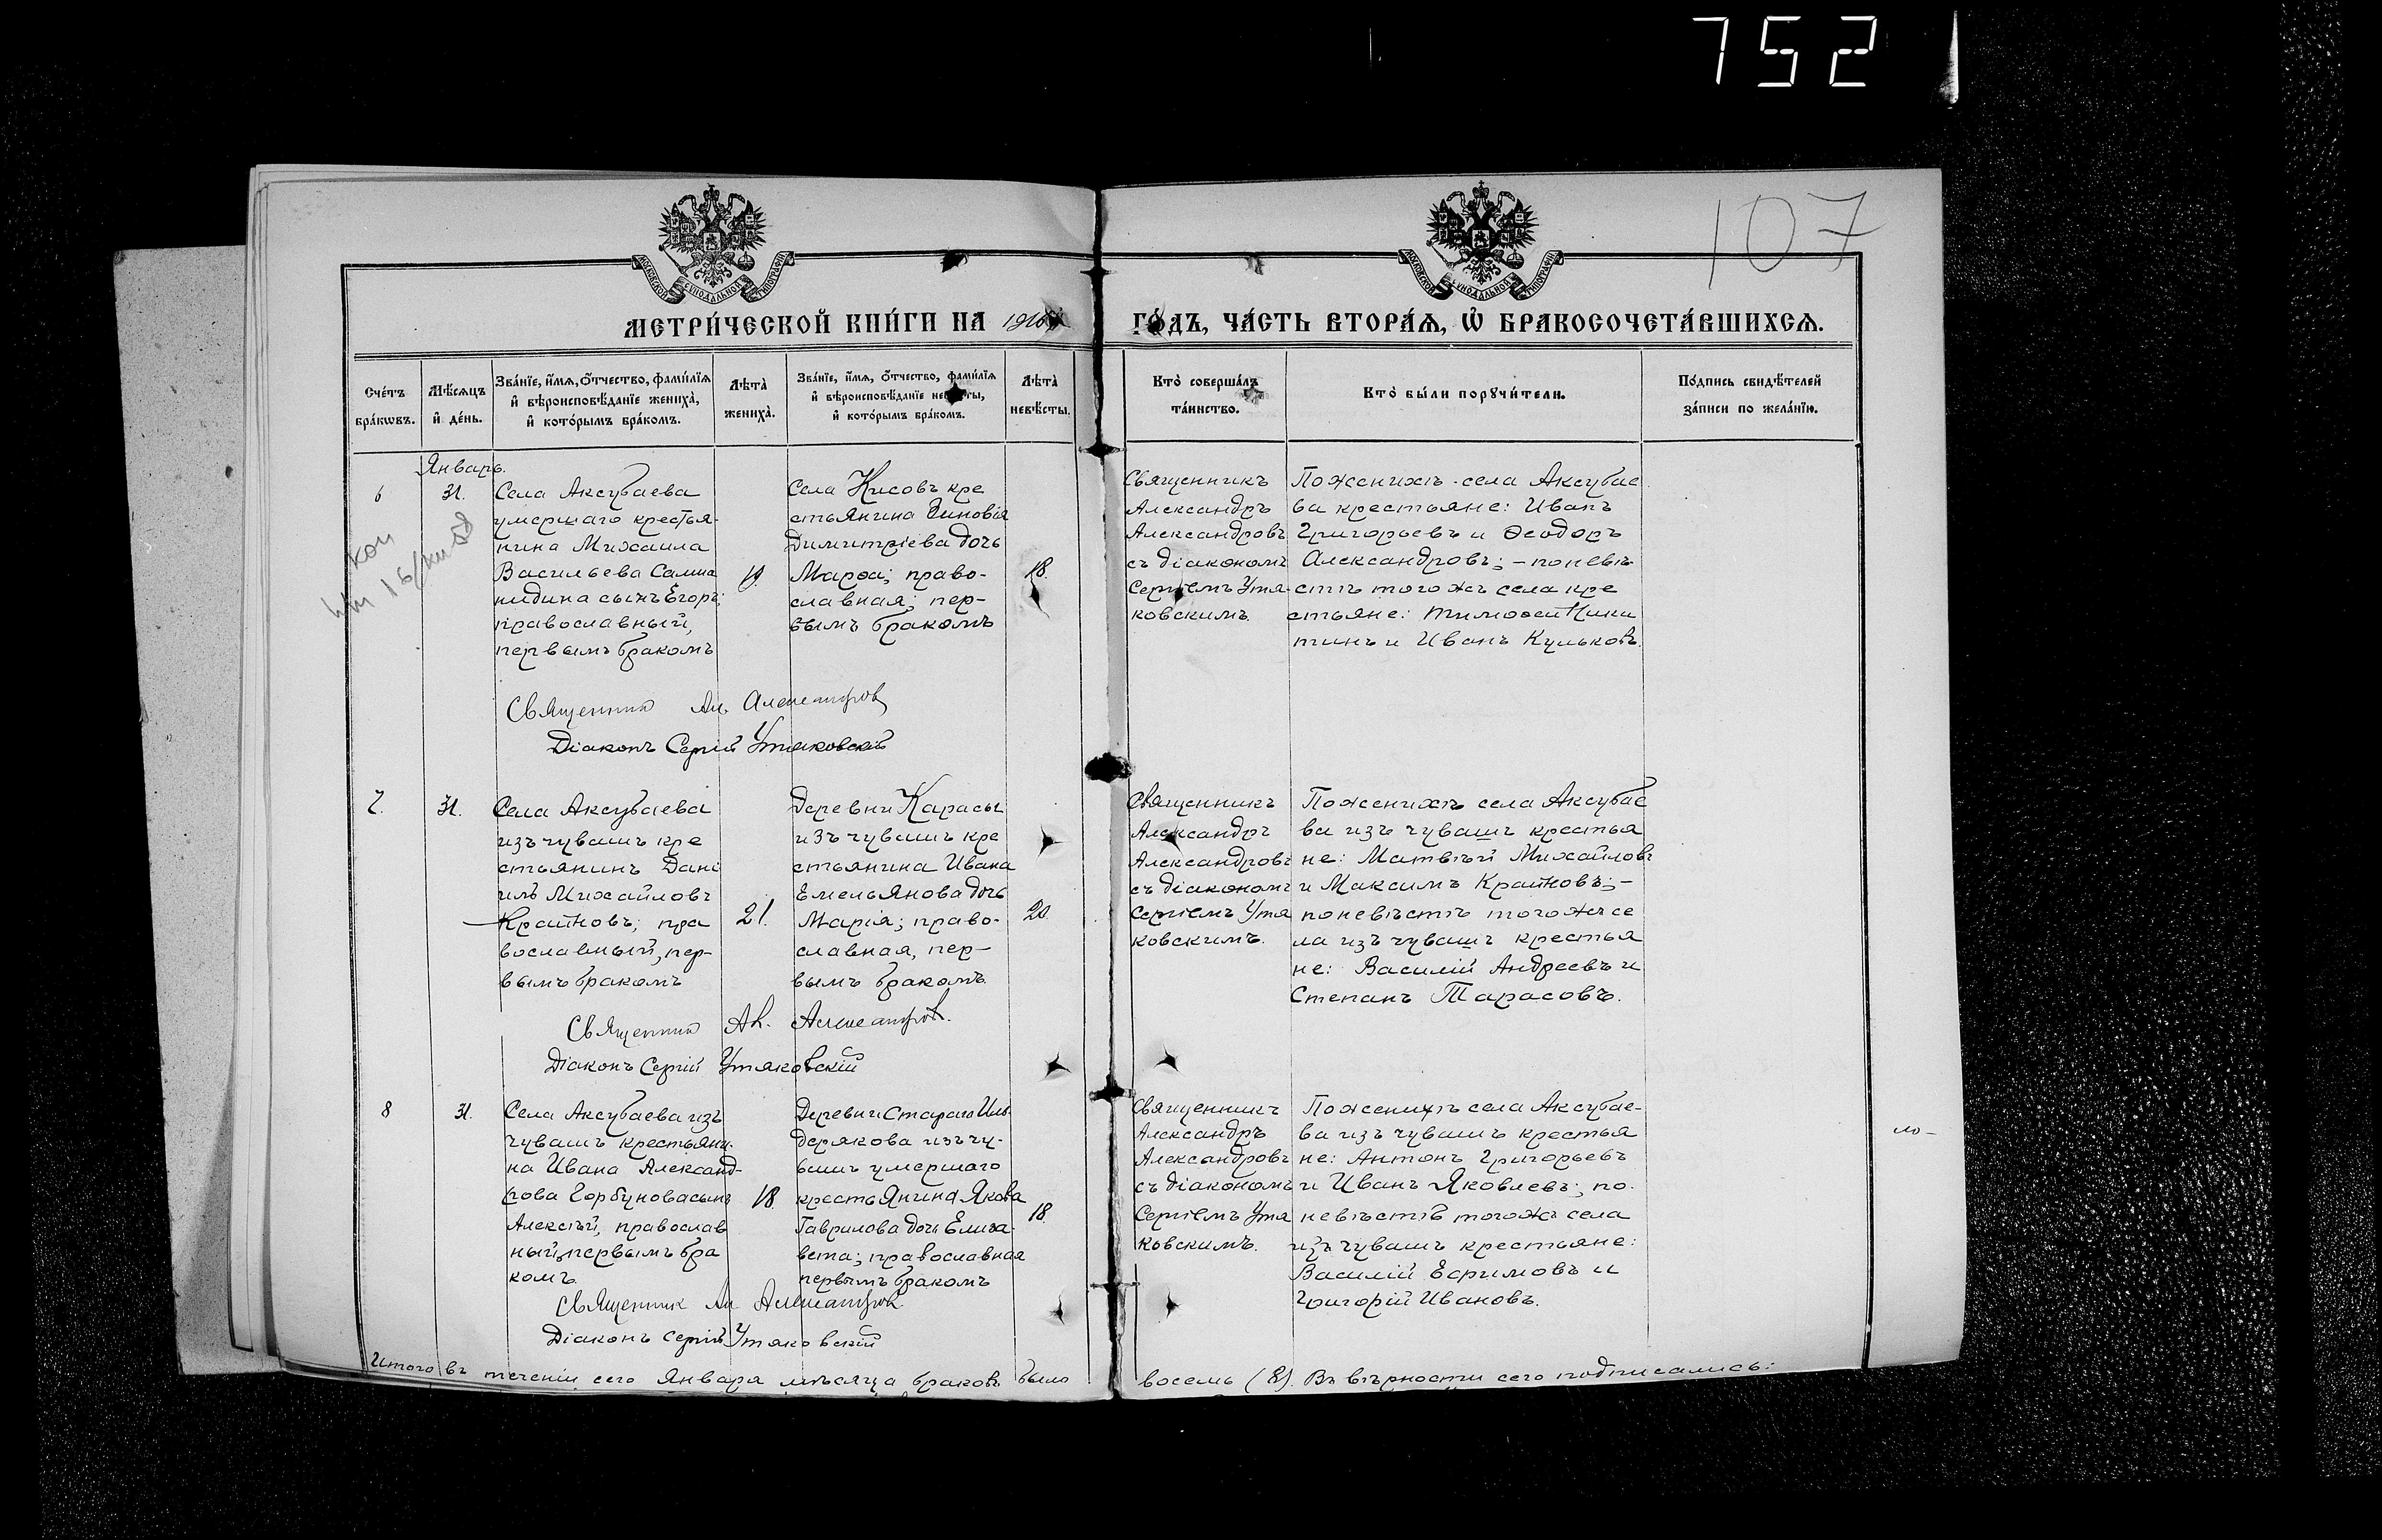 752
107
МОСКОВСКОЙ СѴНОДАЛЬНОЙ ТИПОГРАФІИ
МОСКОВСКОЙ СѴНОДАЛЬНОЙ ТИПОГРАФІИ
МЕТРИ́ЧЕСКОЙ КНИ́ГИ НА
ГО́ДЪ, ЧА́СТЬ ВТОРА́Я, Ѡ҆ БРАКОСОЧЕТА́ВШИХСѦ.
Сче́тъ бра́кѡвъ.
Мѣ́сѧцъ и҆ де́нь.
Зва́нїе, и҆́мѧ, ѻ҆́тчество, фами́лїѧ и҆ вѣроисповѣ́данїе жениха̀, и҆ кото́рымъ бра́комъ.
Лѣта̀ жениха̀.
Зва́нїе, и҆́мѧ, ѻ҆́тчество, фами́лїѧ и҆ вѣроисповѣ́данїе невѣ́сты, и҆ кото́рымъ бра́комъ.
Лѣта̀ невѣ́сты.
Кто̀ соверша́лъ та́инство.
Кто̀ бы́ли порꙋчи́тели.
По́дпись свидѣ́телей за́писи по жела́нїю.
Январь.
6
31.
Села Аксубаева
умершаго крестья-
нина Михаила
Васильева
сынъ Егоръ;
православный,
первымъ бракомъ
19.
Села Кисовъ кре
стьянина Зиновія
Димитріева дочь
Марѳа; право-
славная; пер-
вымъ бракомъ
18.
Священникъ
Александръ
Александровъ
съ діакономъ
Сергіемъ Утя-
ковскимъ.
По женихѣ села Аксубае
ва крестьяне: Иванъ
Григорьевъ и Ѳеодоръ
Александровъ; – по невѣ
стѣ того жъ села кре
стьяне: Тимоѳей Ники
тинъ и Иванъ Кульковъ.
Священникъ Ал. Александров
Діаконъ Сергій Утяковскій
7.
31.
Села Аксубаева
изъ чувашъ кре
стьянинъ Дані
илъ Михайловъ
Крайновъ; пра
вославный, пер-
вымъ бракомъ
21.
Деревни Карасы
изъ чувашъ кре
стьянина Ивана
Емельянова дочь
Марія; право-
славная, пер-
вымъ бракомъ.
20.
Священникъ
Александръ
Александровъ
съ діакономъ
Сергіемъ Утя
ковскимъ.
По женихѣ села Аксубае
ва изъ чувашъ крестья
не: Матвѣй Михайловъ
и Максимъ Крайновъ; –
по невѣстѣ того жъ се
ла изъ чувашъ крестья
не: Василій Андреевъ и
Степанъ Тарасовъ.
Священник Ал. Александров.
Діаконъ Сергій Утяковскій
8
31.
Села Аксубаева изъ
чувашъ крестьяни-
на Ивана Александ-
рова Горбунова сынъ
Алексѣй, православ
ный, первымъ бра
комъ.
18.
Деревни Стараго Иль-
дерякова изъ чу-
вашъ умершаго
крестьянина Якова
Гаврилова дочь Елиза-
вета; православная
первымъ бракомъ
18.
Священникъ
Александръ
Александровъ
съ діакономъ
Сергіемъ Утя
ковскимъ.
По женихѣ села Аксубае-
ва изъ чувашъ крестья
не: Антонъ Григорьевъ
и Иванъ Яковлевъ; по
невѣстѣ того жъ села
изъ чувашъ крестьяне:
Василій Ефимовъ и
Григорій Ивановъ.
Священник Ал. Александров
Діаконъ Сергій Утяковскій
Итого въ теченіи сего Января мѣсяца браковъ было восемь (8). Въ вѣрности сего подписались: